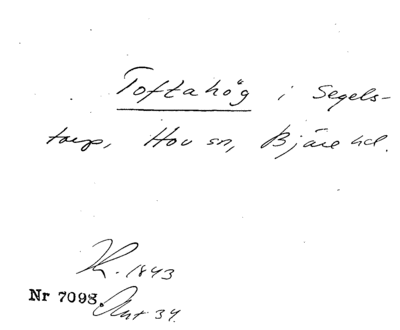 Toftahög i Segels-
torp, Hov sn, Bjäre hd.
K. 1843
Nr 7098. Ant 34.